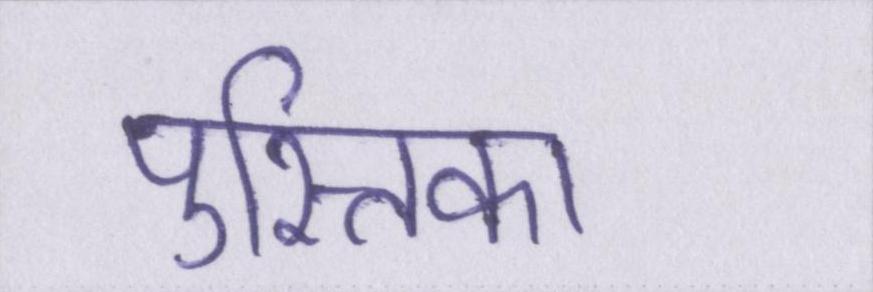 पुस्तिका